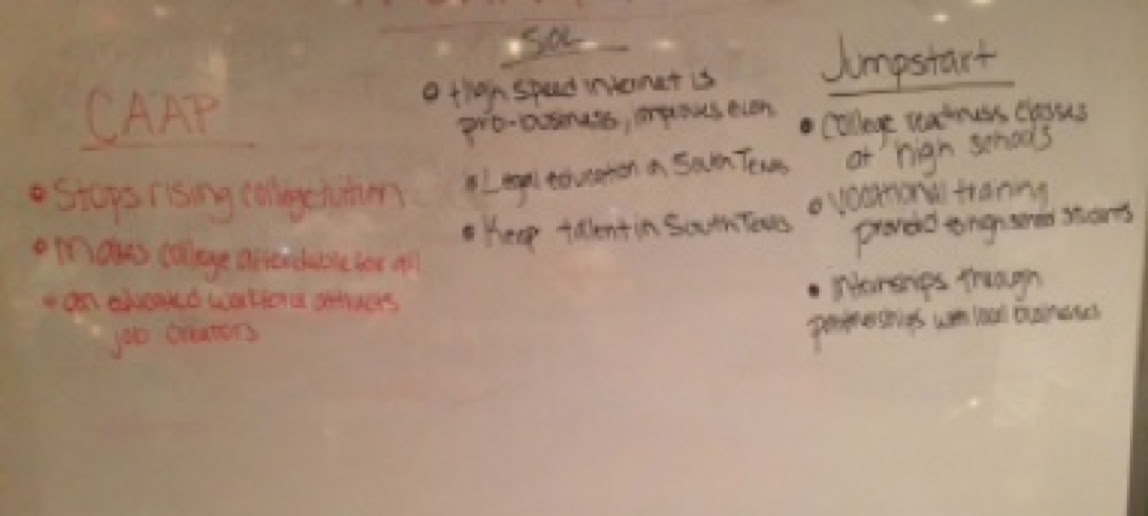 CAAP
• Stops rising college tuition
• Makes college affordable for all
• an educated workforce attracts
job creators
SOL
• High speed internet is
pro-business, improves econ
• Legal education in South Texas
• Keep talent in South Texas
Jumpstart
• College readiness classes
at high schools
• Vocational training
provided to high school students
• internships through
partnerships with local businesses